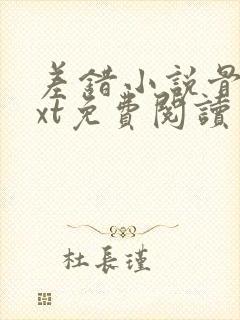 差錯小說最
xt免費閱讀
杜長瑾